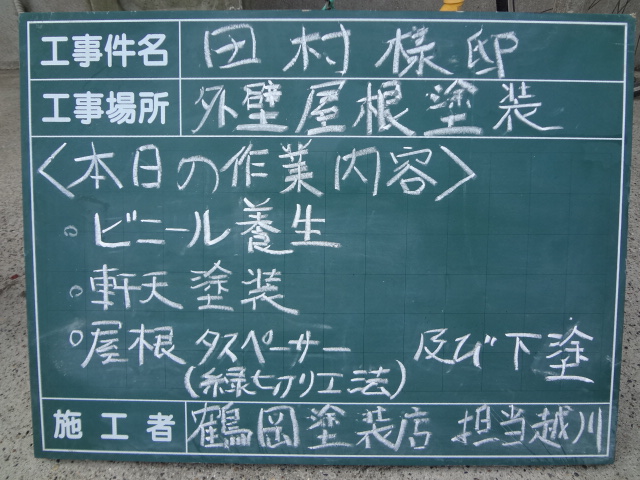 工事件名 田村様邸
工事場所 外壁屋根塗装
〈本日の作業内容〉
。ビニール養生
。軒天塗装
。屋根 タスペーサー 及び下塗
(縁切り工法)
施工者 鶴岡塗装店 担当越川